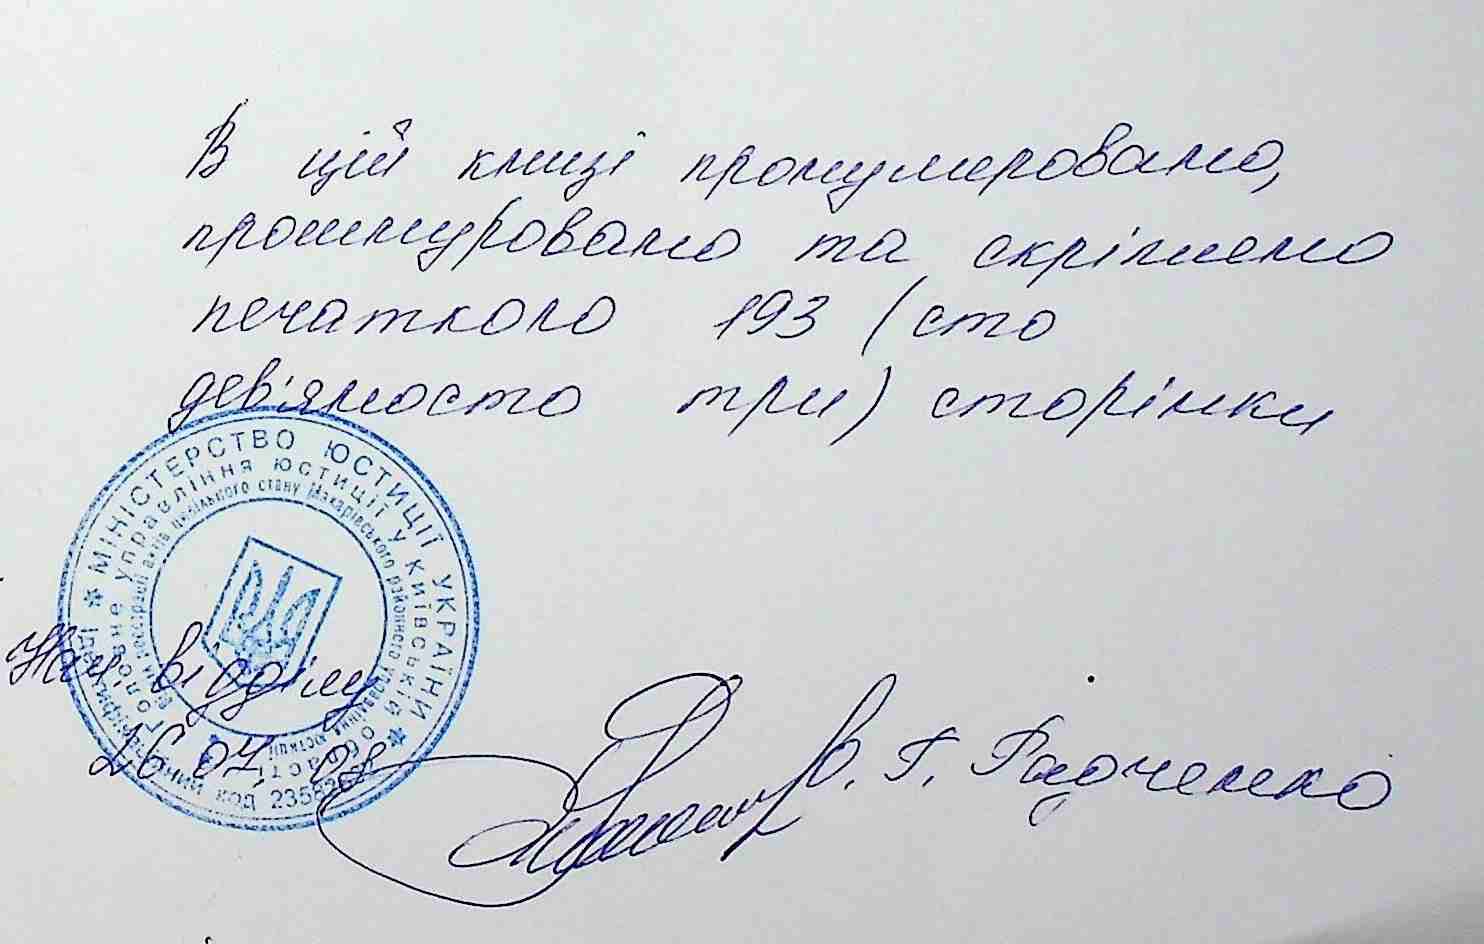 В цій книзі пронумеровано,
прошнуровано та скріплено
печаткою 193 (сто
дев'яносто три) сторінки
МІНІСТЕРСТВО ЮСТИЦІЇ УКРАЇНИ
Головне управління юстиції у Київській області
реєстрації актів цивільного стану Макарівського районного управління юстиції
код
Нач відділу
26 07 08
В. Г. Радченко